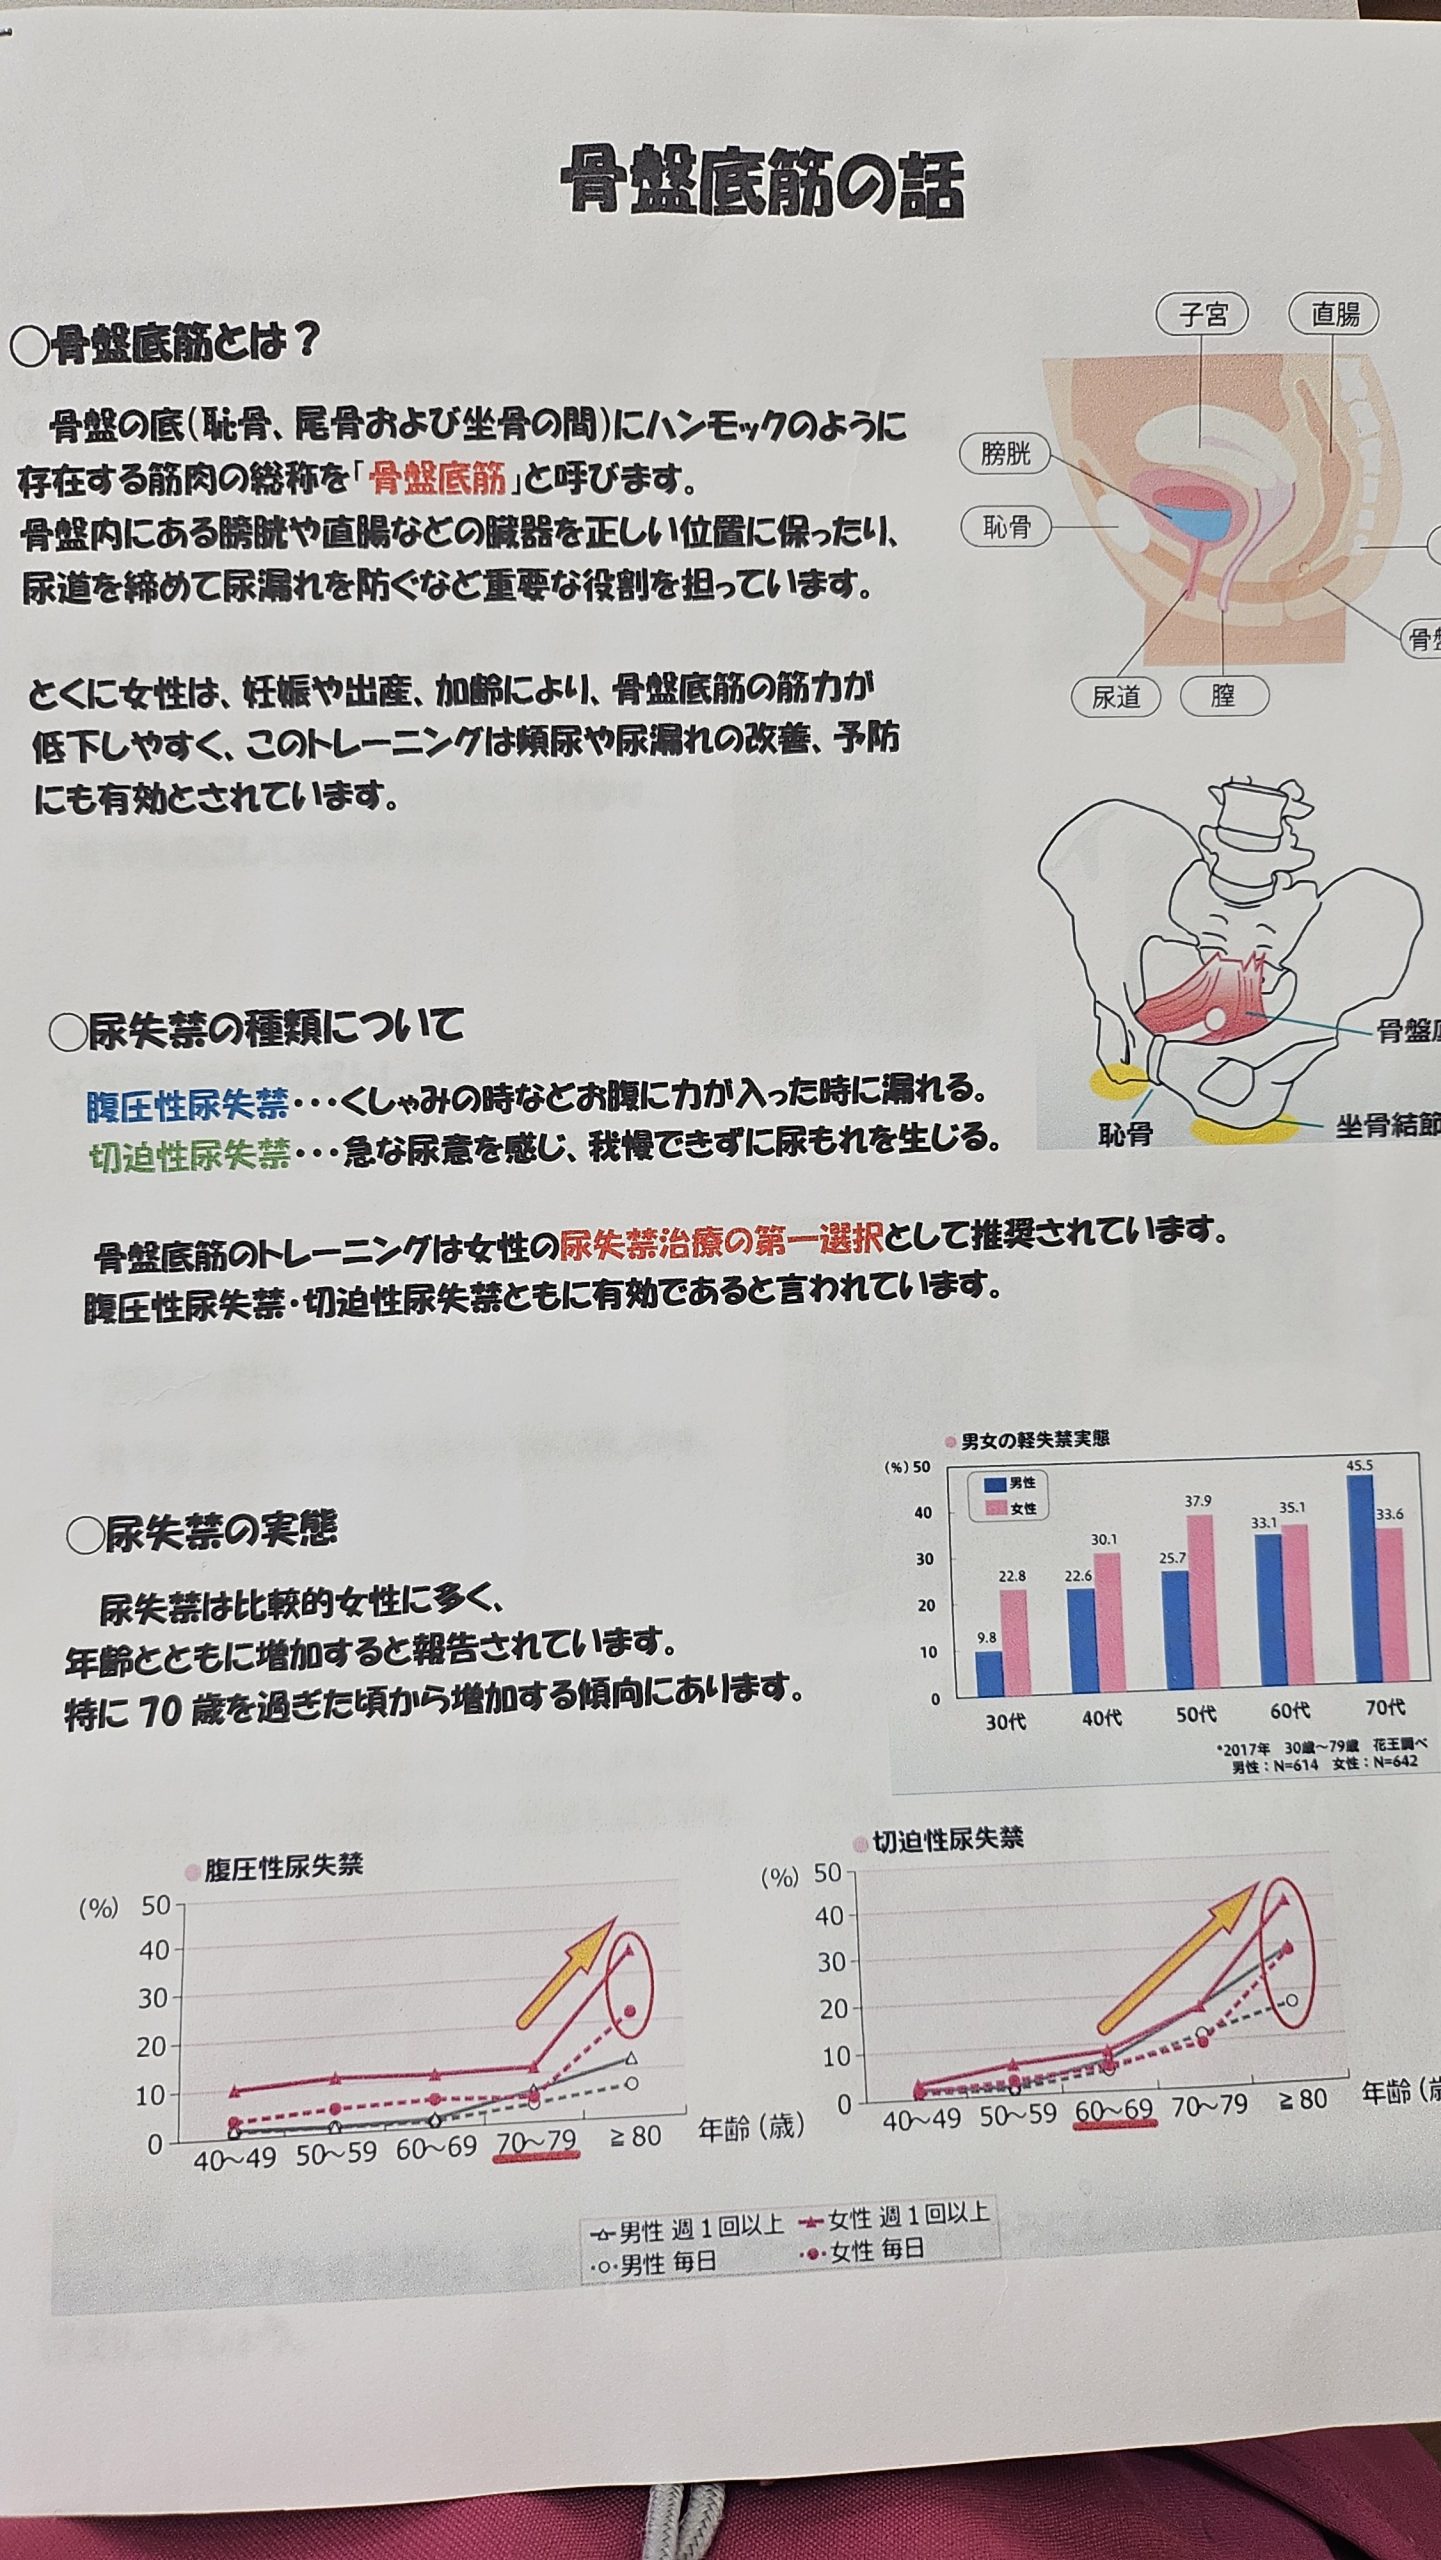 骨盤底筋の話
○骨盤底筋とは？
骨盤の底(恥骨、尾骨および坐骨の間)にハンモックのように
存在する筋肉の総称を「骨盤底筋」と呼びます。
骨盤内にある膀胱や直腸などの臓器を正しい位置に保ったり、
尿道を締めて尿漏れを防ぐなど重要な役割を担っています。
とくに女性は、妊娠や出産、加齢により、骨盤底筋の筋力が
低下しやすく、このトレーニングは頻尿や尿漏れの改善、予防
にも有効とされています。
子宮
直腸
膀胱
恥骨
骨盤
尿道
膣
骨盤
恥骨
坐骨結節
○尿失禁の種類について
腹圧性尿失禁・・・くしゃみの時などお腹に力が入った時に漏れる。
切迫性尿失禁・・・急な尿意を感じ、我慢できずに尿もれを生じる。
骨盤底筋のトレーニングは女性の尿失禁治療の第一選択として推奨されています。
腹圧性尿失禁・切迫性尿失禁ともに有効であると言われています。
○尿失禁の実態
尿失禁は比較的女性に多く、
年齢とともに増加すると報告されています。
特に 70 歳を過ぎた頃から増加する傾向にあります。
●男女の軽失禁実態
(%) 50
40
30
20
10
0
男性
女性
9.8
22.8
22.6
30.1
25.7
37.9
33.1
35.1
45.5
33.6
30代 40代 50代 60代 70代
*2017年 30歳～79歳 花王調べ
男性：N=614 女性：N=642
●腹圧性尿失禁
(%) 50
40
30
20
10
0
40～49 50～59 60～69 70～79 ≧80 年齢(歳)
●切迫性尿失禁
(%) 50
40
30
20
10
0
40～49 50～59 60～69 70～79 ≧80 年齢(歳
男性 週1回以上 女性 週1回以上
男性 毎日 女性 毎日